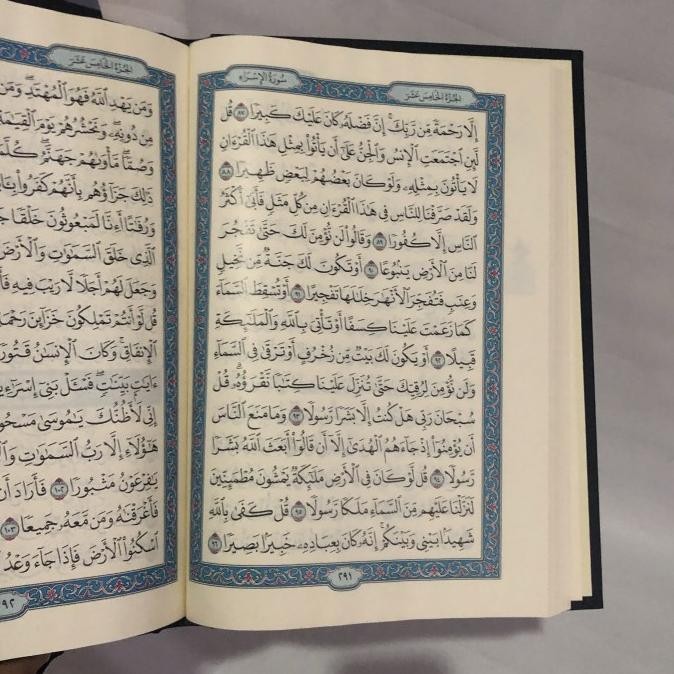 الجزء الخامس عشر
سورة الإسراء
إِلَّا رَحْمَةً مِّن رَّبِّكَ ۚ إِنَّ فَضْلَهُۥ كَانَ عَلَيْكَ كَبِيرًا ٨٧ قُل
لَّئِنِ ٱجْتَمَعَتِ ٱلْإِنسُ وَٱلْجِنُّ عَلَىٰٓ أَن يَأْتُوا۟ بِمِثْلِ هَٰذَا ٱلْقُرْءَانِ
لَا يَأْتُونَ بِمِثْلِهِۦ وَلَوْ كَانَ بَعْضُهُمْ لِبَعْضٍ ظَهِيرًا ٨٨
وَلَقَدْ صَرَّفْنَا لِلنَّاسِ فِى هَٰذَا ٱلْقُرْءَانِ مِن كُلِّ مَثَلٍ فَأَبَىٰٓ أَكْثَرُ
ٱلنَّاسِ إِلَّا كُفُورًا ٨٩ وَقَالُوا۟ لَن نُّؤْمِنَ لَكَ حَتَّىٰ تَفْجُرَ
لَنَا مِنَ ٱلْأَرْضِ يَنۢبُوعًا ٩٠ أَوْ تَكُونَ لَكَ جَنَّةٌ مِّن نَّخِيلٍ
وَعِنَبٍ فَتُفَجِّرَ ٱلْأَنْهَٰرَ خِلَٰلَهَا تَفْجِيرًا ٩١ أَوْ تُسْقِطَ ٱلسَّمَآءَ
كَمَا زَعَمْتَ عَلَيْنَا كِسَفًا أَوْ تَأْتِىَ بِٱللَّهِ وَٱلْمَلَٰٓئِكَةِ
قَبِيلًا ٩٢ أَوْ يَكُونَ لَكَ بَيْتٌ مِّن زُخْرُفٍ أَوْ تَرْقَىٰ فِى ٱلسَّمَآءِ
وَلَن نُّؤْمِنَ لِرُقِيِّكَ حَتَّىٰ تُنَزِّلَ عَلَيْنَا كِتَٰبًا نَّقْرَؤُهُۥ ۗ قُلْ
سُبْحَانَ رَبِّى هَلْ كُنتُ إِلَّا بَشَرًا رَّسُولًا ٩٣ وَمَا مَنَعَ ٱلنَّاسَ
أَن يُؤْمِنُوٓا۟ إِذْ جَآءَهُمُ ٱلْهُدَىٰٓ إِلَّآ أَن قَالُوٓا۟ أَبَعَثَ ٱللَّهُ بَشَرًا
رَّسُولًا ٩٤ قُل لَّوْ كَانَ فِى ٱلْأَرْضِ مَلَٰٓئِكَةٌ يَمْشُونَ مُطْمَئِنِّينَ
لَنَزَّلْنَا عَلَيْهِم مِّنَ ٱلسَّمَآءِ مَلَكًا رَّسُولًا ٩٥ قُلْ كَفَىٰ بِٱللَّهِ
شَهِيدًۢا بَيْنِى وَبَيْنَكُمْ ۚ إِنَّهُۥ كَانَ بِعِبَادِهِۦ خَبِيرًۢا بَصِيرًا ٩٦
٢٩١
الجزء الخامس عشر
وَمَن يَهْدِ ٱللَّهُ فَهُوَ ٱلْمُهْتَدِ ۖ وَمَن
مِن دُونِهِۦ ۖ وَنَحْشُرُهُمْ يَوْمَ ٱلْقِيَٰمَةِ
وَصُمًّا ۖ مَّأْوَىٰهُمْ جَهَنَّمُ ۖ كُلَّمَا
ذَٰلِكَ جَزَآؤُهُم بِأَنَّهُمْ كَفَرُوا۟
وَرُفَٰتًا أَءِنَّا لَمَبْعُوثُونَ خَلْقًا
ٱلَّذِى خَلَقَ ٱلسَّمَٰوَٰتِ وَٱلْأَرْضَ
وَجَعَلَ لَهُمْ أَجَلًا لَّا رَيْبَ فِيهِ
قُل لَّوْ أَنتُمْ تَمْلِكُونَ خَزَآئِنَ
ٱلْإِنفَاقِ ۚ وَكَانَ ٱلْإِنسَٰنُ قَتُورًا
ءَايَٰتٍۭ بَيِّنَٰتٍ ۖ فَسْـَٔلْ بَنِىٓ
إِنِّى لَأَظُنُّكَ يَٰمُوسَىٰ
هَٰٓؤُلَآءِ إِلَّا رَبُّ ٱلسَّمَٰوَٰتِ
يَٰفِرْعَوْنُ مَثْبُورًا ١٠٢ فَأَرَادَ أَن
فَأَغْرَقْنَٰهُ وَمَن مَّعَهُۥ جَمِيعًا ١٠٣
ٱسْكُنُوا۟ ٱلْأَرْضَ فَإِذَا جَآءَ وَعْدُ